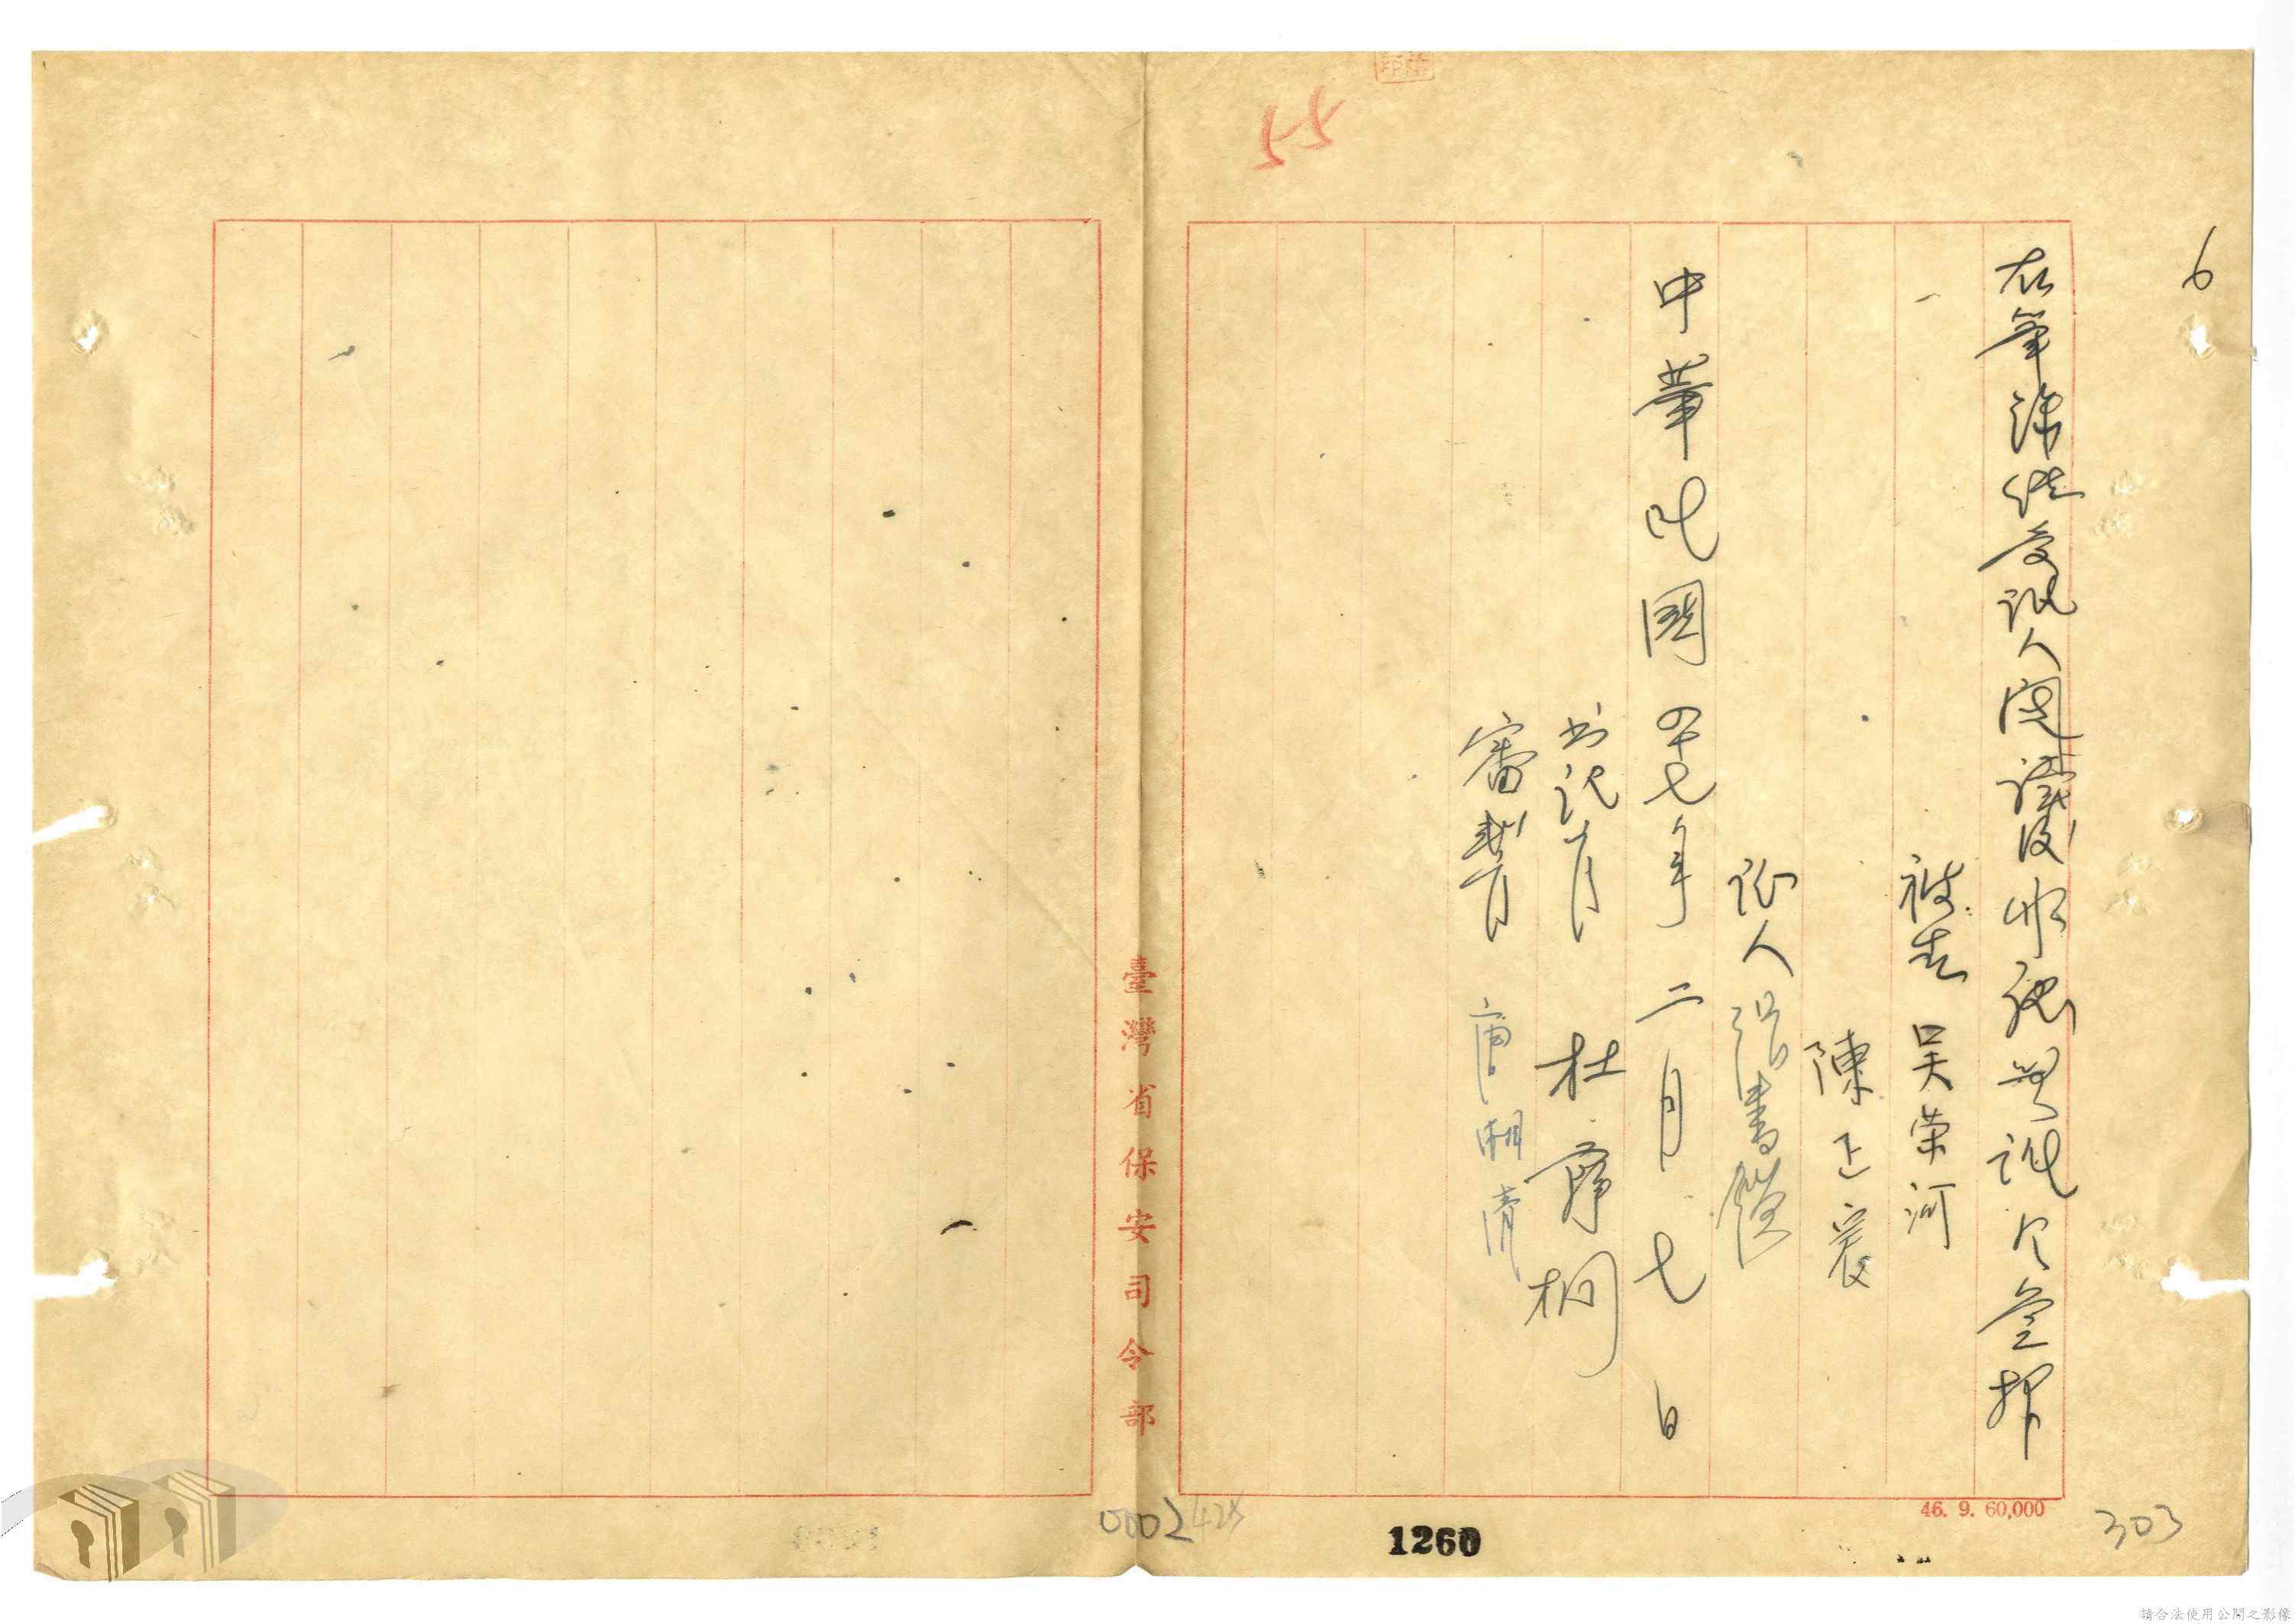 6
55
右筆錄經受訊人閱讀後承認無訛令簽押
被告 吳荣河
陳正宸
证人
中華民國四十七年二月七日
书记官 杜 桐
審判官 唐湘清
臺灣省保安司令部
46. 9. 60,000
303
1260
0002425
請合法使用公開之影像